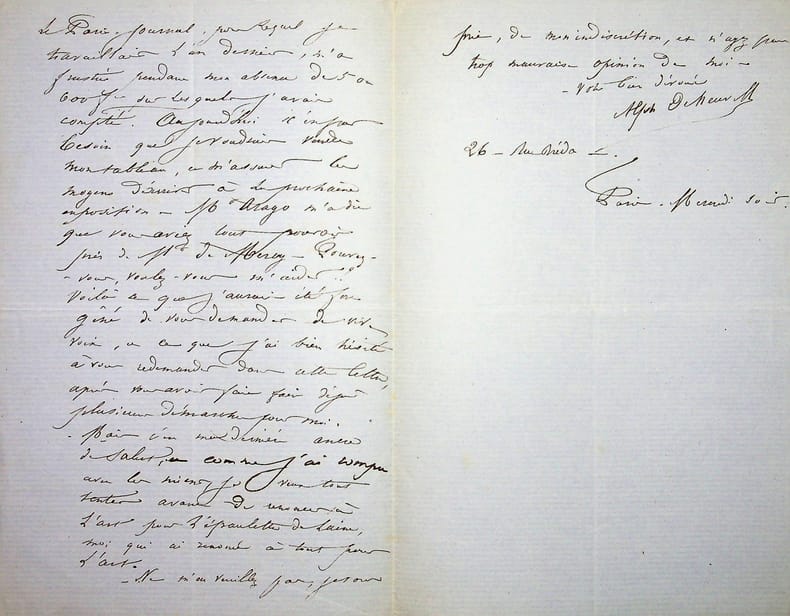 Le Paris-Journal, pour lequel je
travaillais l'an dernier, m'a
frustré pendant mon absence de 500
600 f. sur lesquels j'avais
compté. Aujourd'hui il est
besoin que je voudrais vendre
mon tableau, et m'assurer les
moyens d'arriver à la prochaine
exposition — Mr Arago m'a dit
que vous aviez tout pouvoir
près de Mr de Mercey — Pouvez-
-vous, voulez-vous m'aider?
Voilà ce que j'aurais été fort
gêné de vous demander de vive
voix, et ce que j'ai bien hésité
à vous redemander dans cette lettre,
après vous avoir fait faire déjà
plusieurs démarches pour moi.
Mais c'est ma dernière ancre
de salut, et comme j'ai rompu
avec les miens, je veux tout
tenter avant de renoncer à
l'art pour l'épaulette de laine,
moi qui ai renoncé à tout pour
l'art.
— Ne m'en veuillez pas, je vous
prie, de mon indiscrétion, et n'ayez pas
trop mauvaise opinion de moi —
— votre bien dévoué
Alph DeNeuvill
26 — Rue Bréda —.
Paris. Mercredi soir.